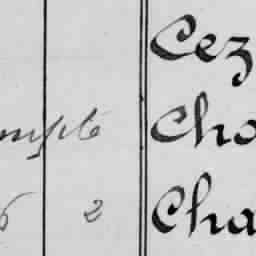 Cez
mpte Cho
6 2 Cha